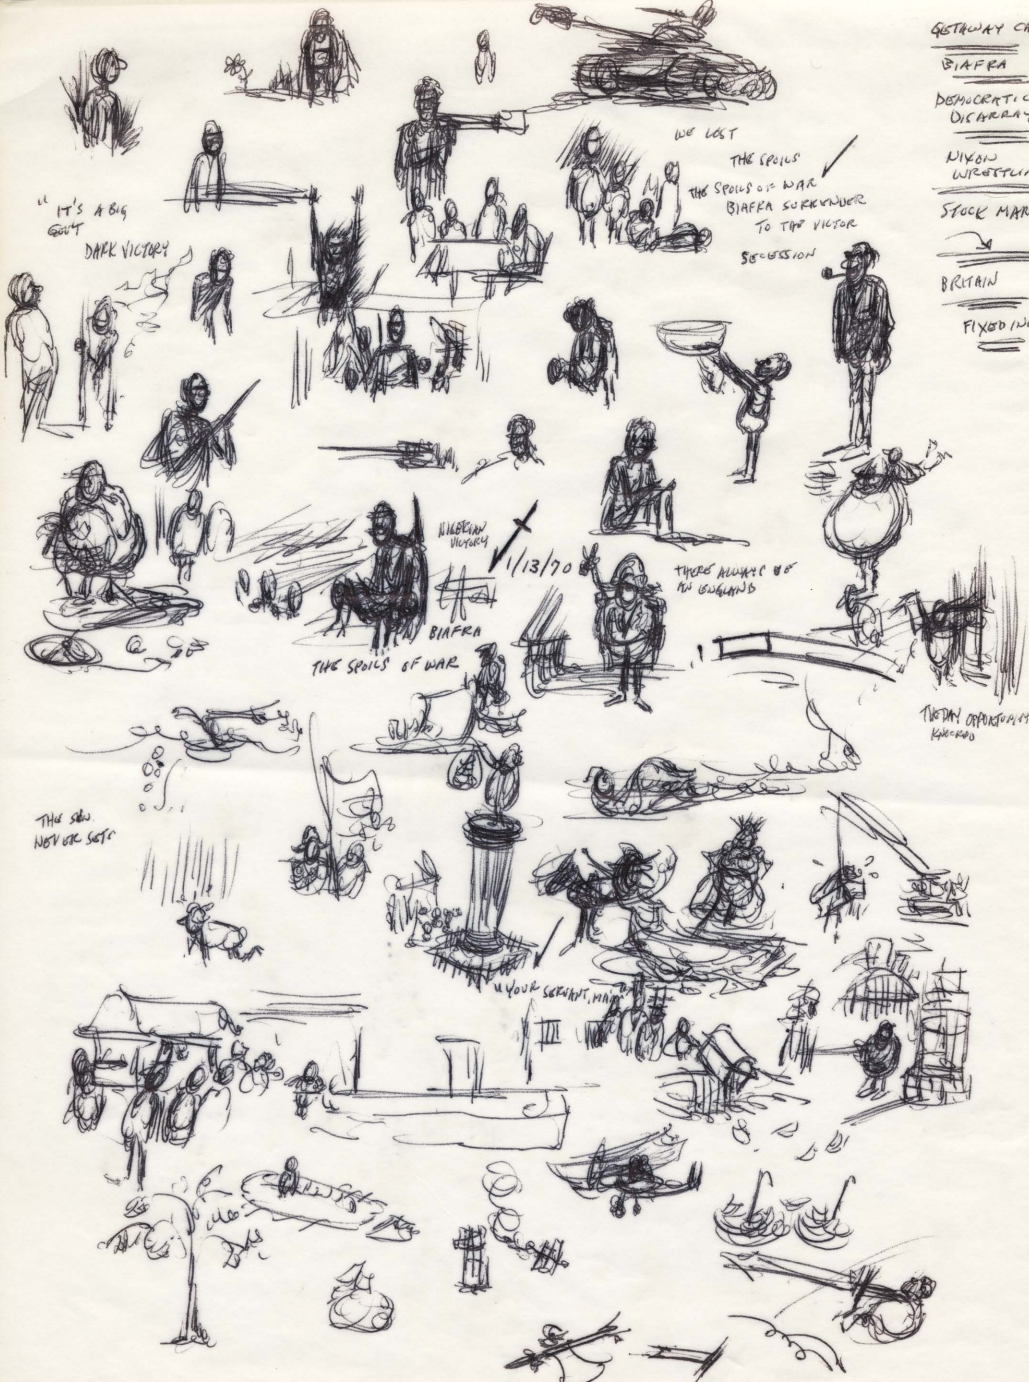 GETAWAY CA
BIAFRA
DEMOCRATIC
DISARRAY
NIXON
WRESTLIN
STOCK MAR
BRITAIN
FIXED IN
WE LOST
THE SPOILS
THE SPOILS OF WAR
BIAFRA SURRENDER
TO THE VICTOR
SECESSION
" IT'S A BIG
GOV'T
DARK VICTORY
NIGERIAN
VICTORY
1/13/70
BIAFRA
THERE ALWAYS BE
AN ENGLAND
THE SPOILS OF WAR
THE DAY OPPORTUNITY
KNOCKED
THE SUN
NEVER SETS
"YOUR SERVANT, MA'M"